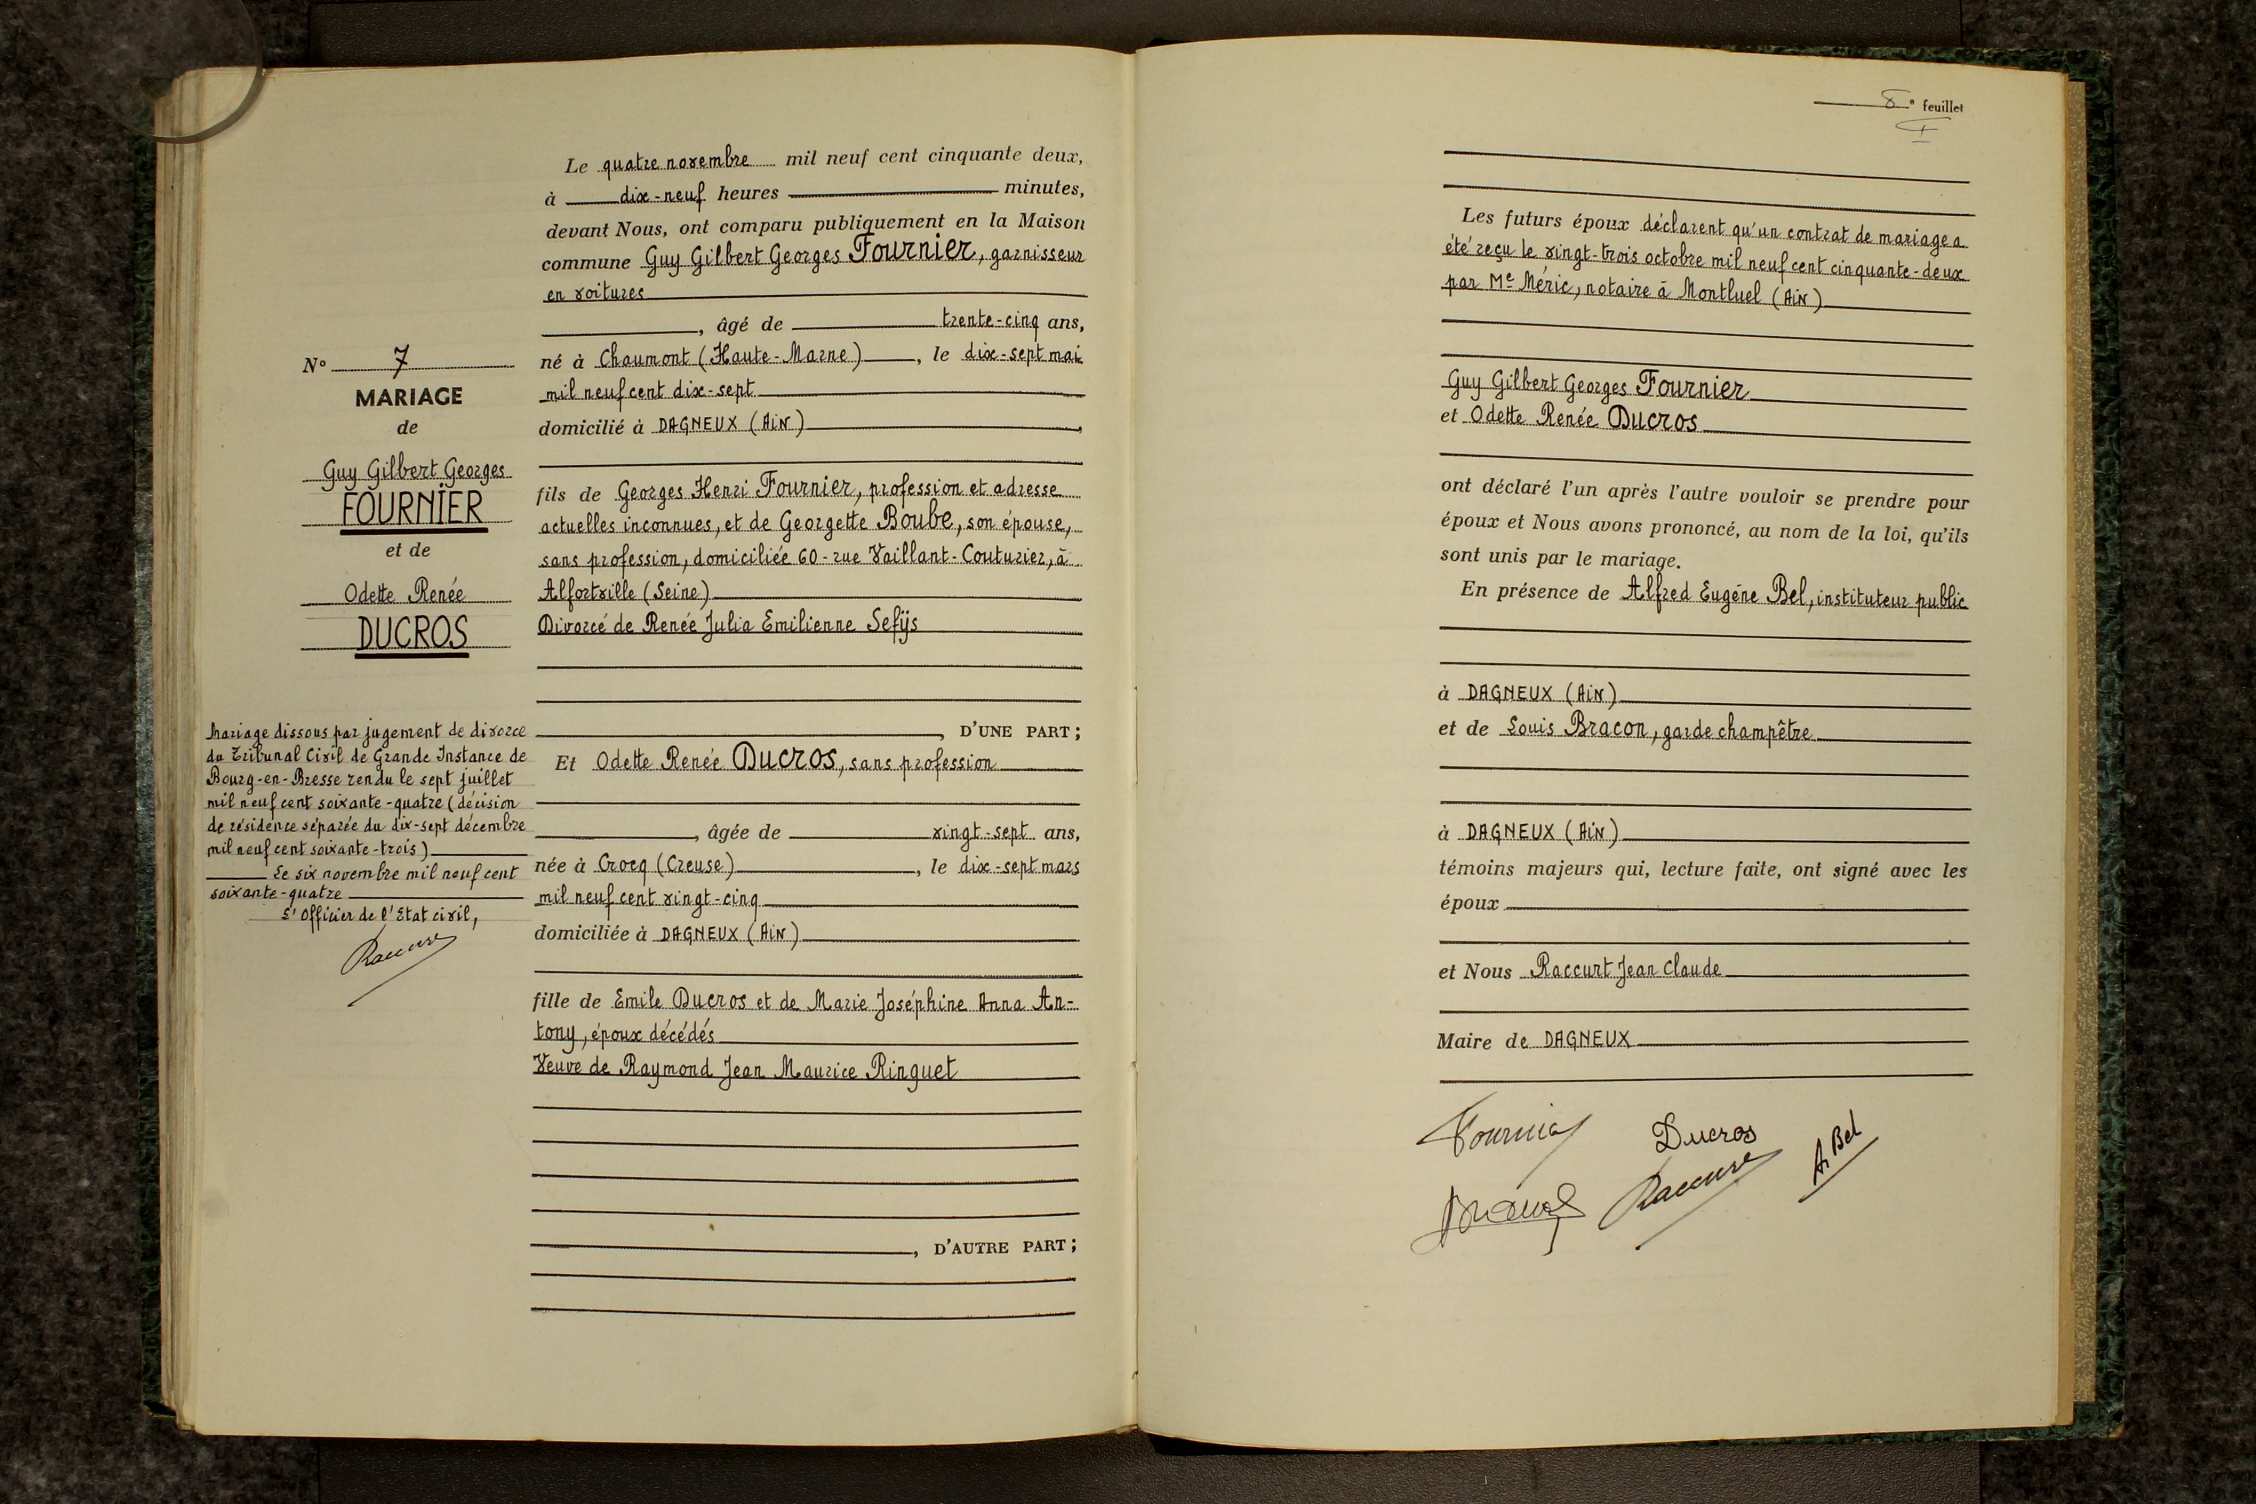 Le quatre novembre mil neuf cent cinquante deux,
à dix-neuf heures minutes,
devant Nous, ont comparu publiquement en la Maison
commune Guy Gilbert Georges Fournier, garnisseur
en voitures
, âgé de trente-cinq ans,
né à Chaumont (Haute-Marne), le dix-sept mai
mil neuf cent dix-sept
domicilié à DAGNEUX (AiN),
fils de Georges Henri Fournier, profession et adresse
actuelles inconnues, et de Georgette Boube, son épouse,
sans profession, domiciliée 60-rue Vaillant-Couturier, à
Alfortville (Seine)
Divorcé de Renée Julia Emilienne Sefijs
, D'UNE PART;
Et Odette Renée Ducros, sans profession
, âgée de vingt-sept ans,
née à Crocq (Creuse), le dix-sept mars
mil neuf cent vingt-cinq
domiciliée à DAGNEUX (AiN)
fille de Emile Ducros et de Marie Joséphine Anna An-
tony, époux décédés
Veuve de Raymond Jean Maurice Ringuet
, D'AUTRE PART;
N° 7
MARIAGE
de
Guy Gilbert Georges
FOURNIER
et de
Odette Renée
DUCROS
Mariage dissous par jugement de divorce
du Tribunal Civil de Grande Instance de
Bourg-en-Bresse rendu le sept juillet
mil neuf cent soixante-quatre (décision
de résidence séparée du dix-sept décembre
mil neuf cent soixante-trois)
Le six novembre mil neuf cent
soixante-quatre
L'Officier de l'Etat civil,
Raccurt
8e feuillet
Les futurs époux déclarent qu'un contrat de mariage a
été reçu le vingt-trois octobre mil neuf cent cinquante-deux
par Me Méric, notaire à Montluel (AiN)
Guy Gilbert Georges Fournier
et Odette Renée Ducros
ont déclaré l'un après l'autre vouloir se prendre pour
époux et Nous avons prononcé, au nom de la loi, qu'ils
sont unis par le mariage.
En présence de Alfred Eugène Bel, instituteur public
à DAGNEUX (AiN)
et de Louis Bracon, garde champêtre
à DAGNEUX (AiN)
témoins majeurs qui, lecture faite, ont signé avec les
époux
et Nous Raccurt Jean Claude
Maire de DAGNEUX
Fournier
Ducros
A. Bel
Raccurt